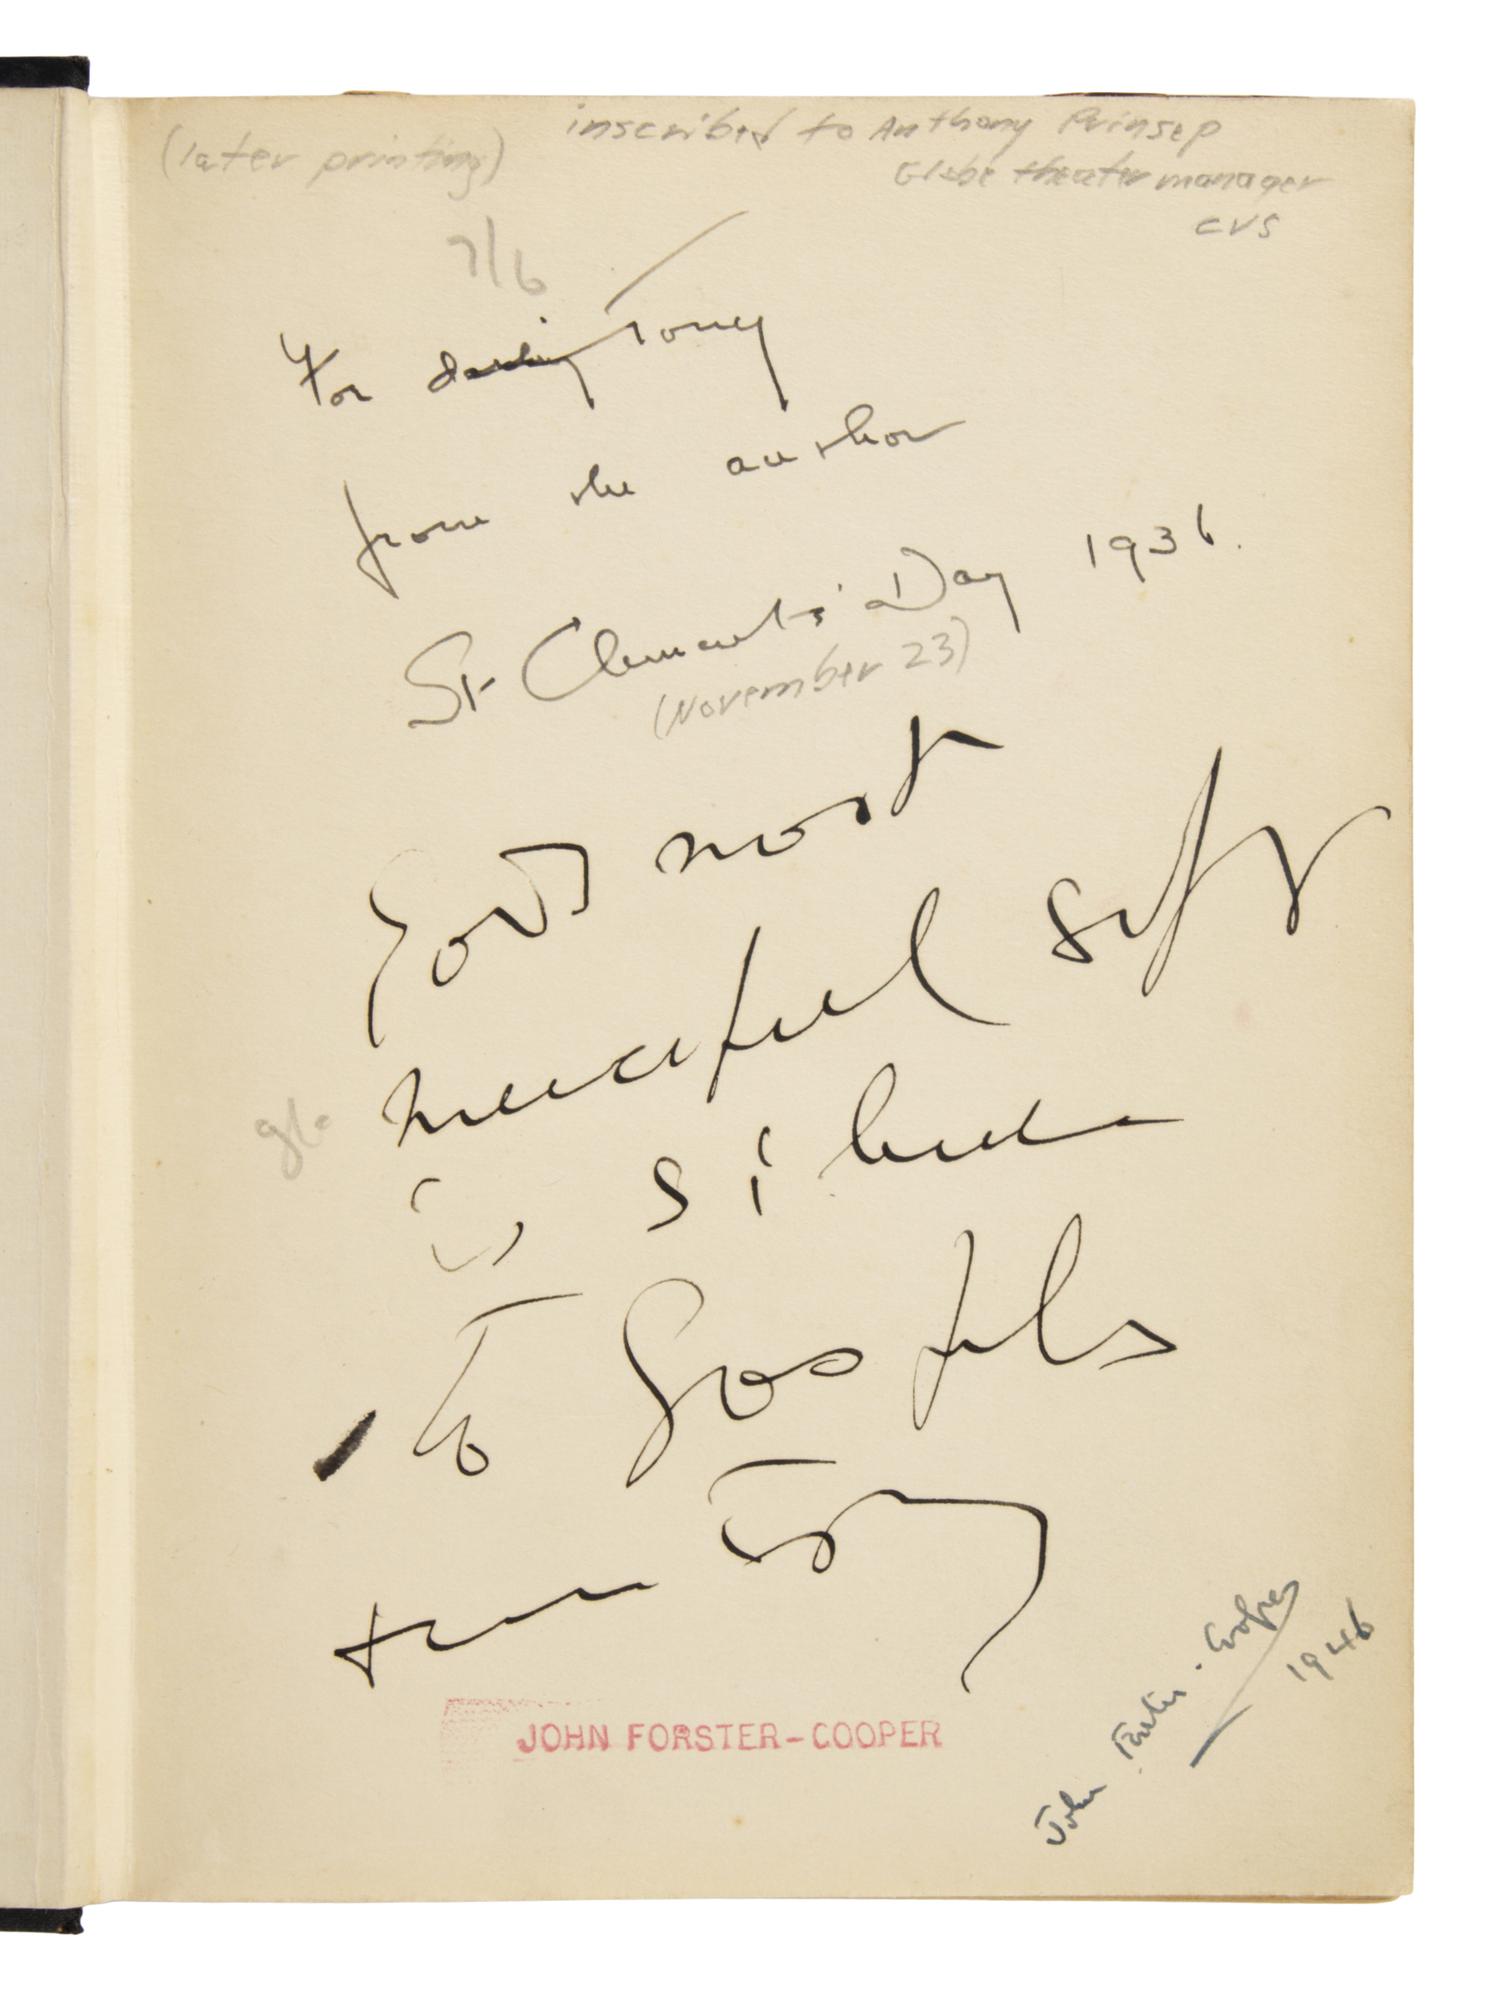 (later printing)
inscribed to Anthony Prinsep
Globe theater manager
CVS
7/6
For darling Tony
from the author
St Clement's Day 1936.
(November 23)
God's most
merciful gift
is silence
To
from Tony
JOHN FORSTER-COOPER
John Forster-Cooper
1946